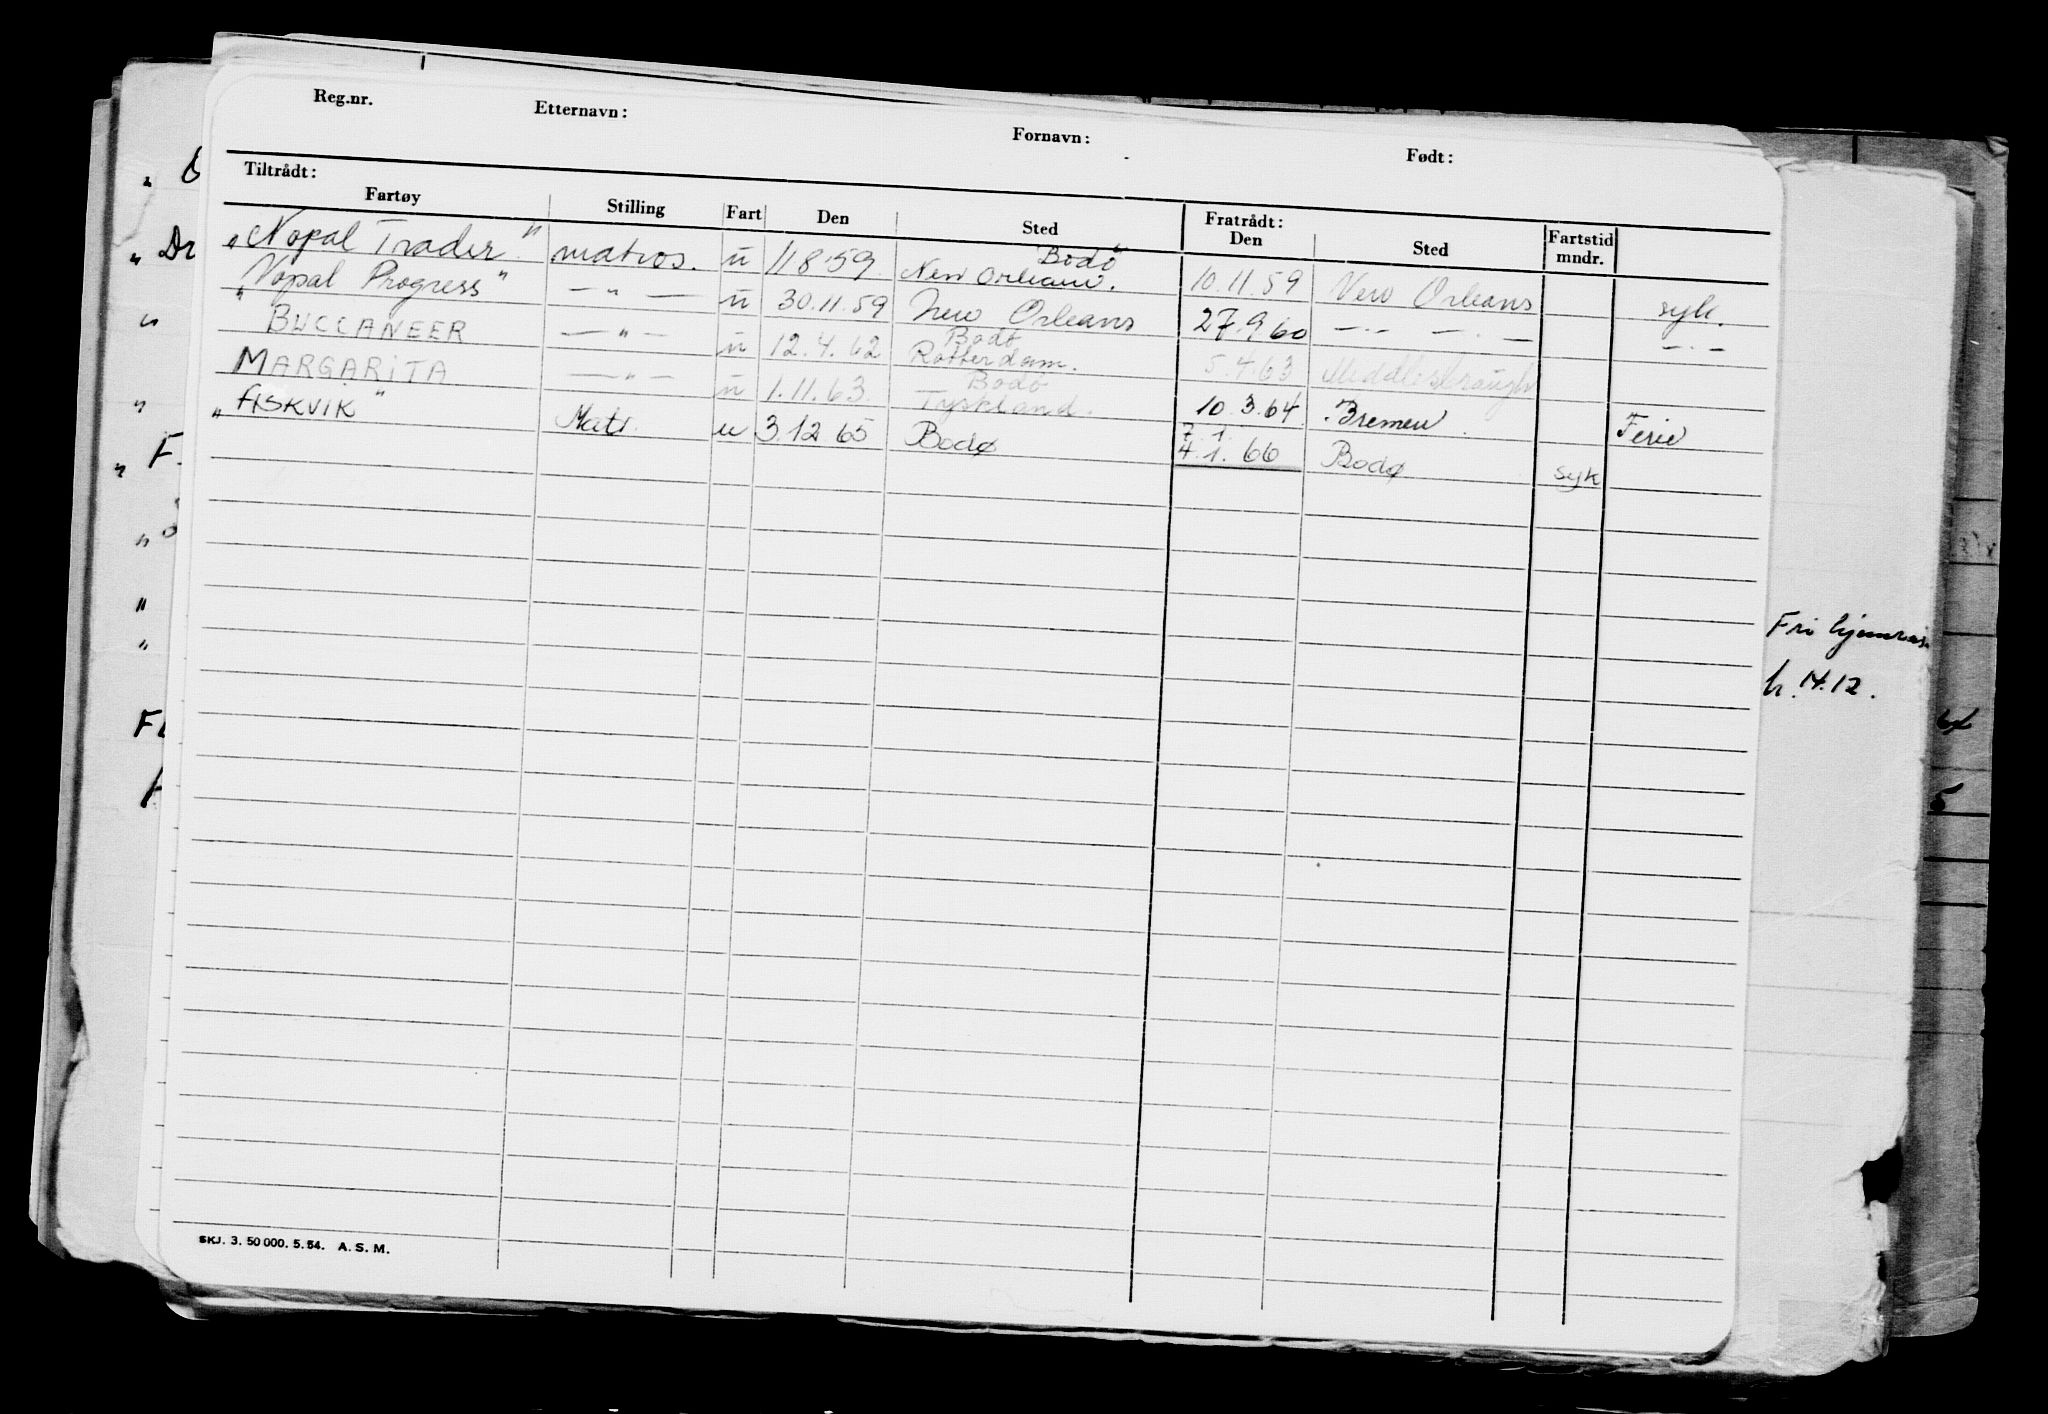 Reg.nr. Etternavn: Fornavn: Født:
Tiltrådt: Fratrådt:
Fartøy Stilling Fart Den Sted Den Sted Fartstid mndr.
„Nopal Trader" matros. ü 11 8 59 Bodø New Orleans. 10.11.59 New Orleans syk.
„Nopal Progress" — " — ü 30.11.59 New Orleans 27.9 60 — " — — " —
BUCCANEER — " — ü 12.4.62 Bodø Rotterdam. 5.4.63 Middlesbrough
MARGARITA — " — ü 1.11.63. Bodø Tyskland. 10.3.64. Bremen. Ferie
„ASKVIK" Matr. u 3.12 65 Bodø 7.1. 4.1.66 Bodø syk
Fri hjemreis.
14.12.
SKJ. 3. 50 000. 5. 54. A. S. M.